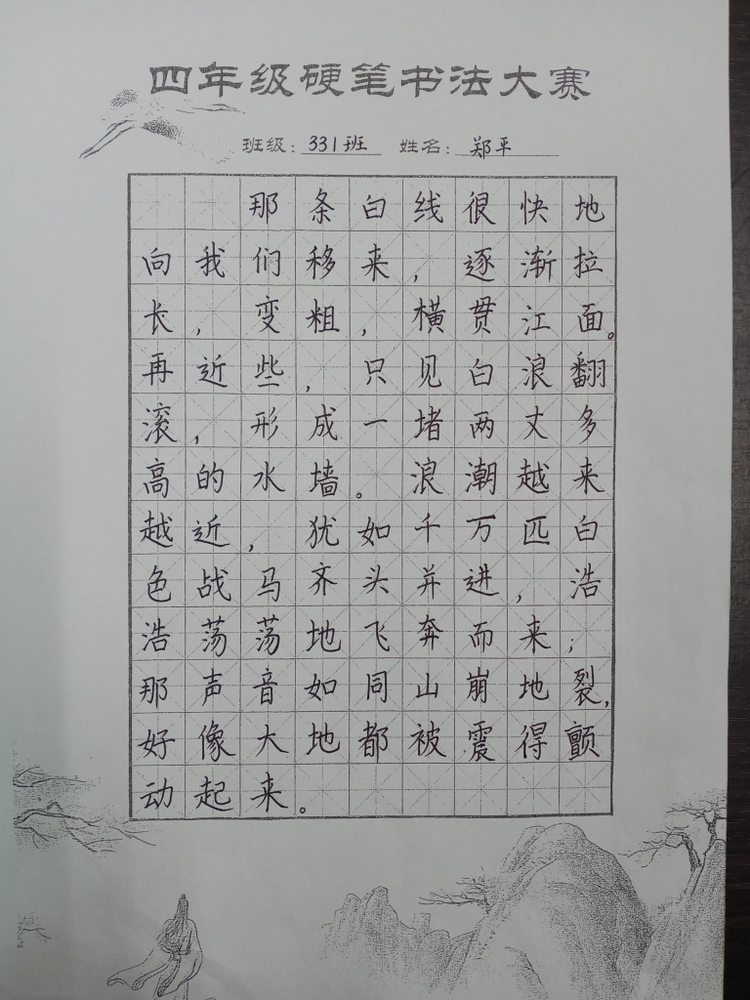 四年级硬笔书法大赛
班级：331班 姓名：郑平
那条白线很快地
向我们移来，逐渐拉
长，变粗，横贯江面。
再近些，只见白浪翻
滚，形成一堵两丈多
高的水墙。浪潮越来
越近，犹如千万匹白
色战马齐头并进，浩
浩荡荡地飞奔而来；
那声音如同山崩地裂，
好像大地都被震得颤
动起来。